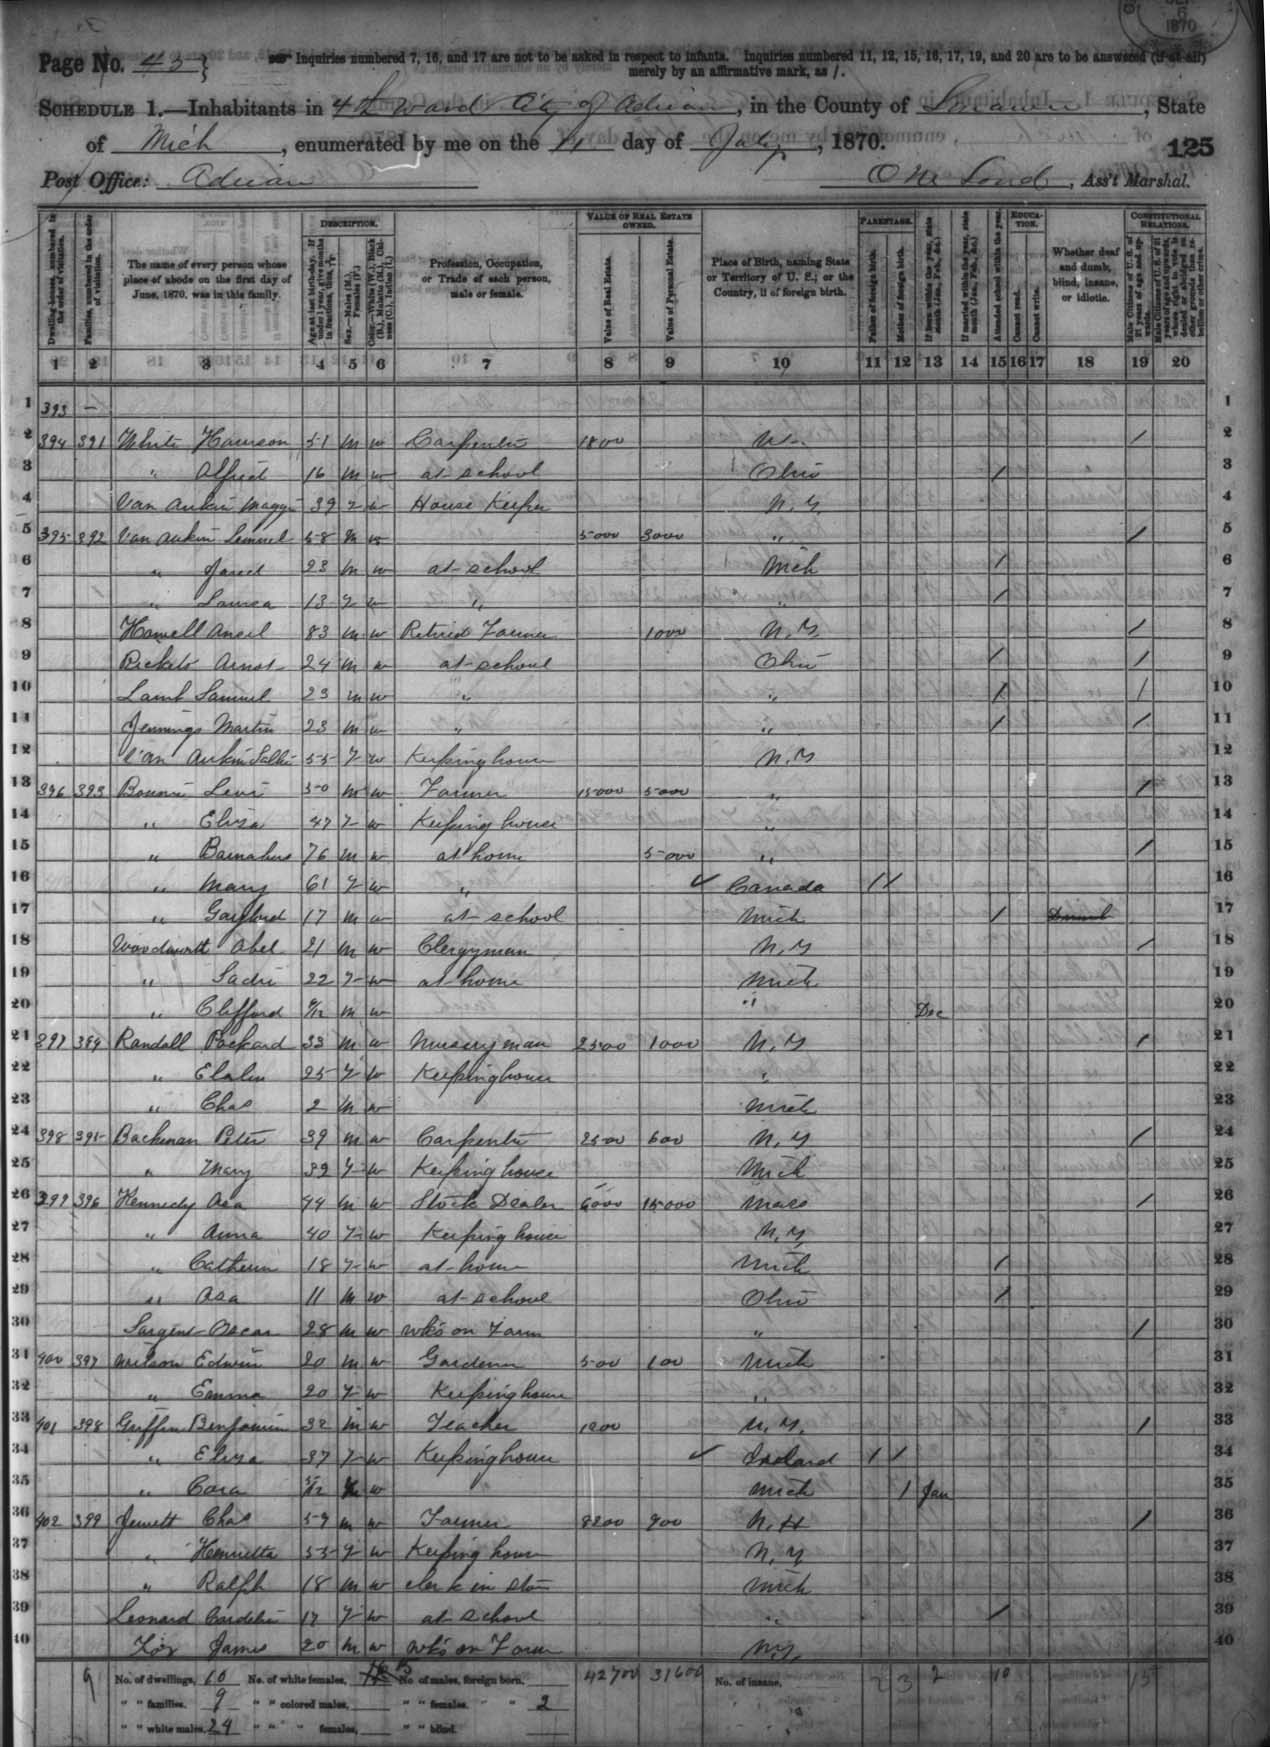 6
1870
Page No. 43
Inquiries numbered 7, 16, and 17 are not to be asked in respect to infants. Inquiries numbered 11, 12, 15, 16, 17, 19, and 20 are to be answered (if at all)
merely by an affirmative mark, as /.
SCHEDULE 1.—Inhabitants in 4th Ward City of Adrian, in the County of Lenawee, State
of Mich, enumerated by me on the 11 day of July, 1870.
125
Post Office: Adrian
Ass't Marshal.
DESCRIPTION.
VALUE OF REAL ESTATE OWNED.
PARENTAGE.
EDUCATION.
CONSTITUTIONAL RELATIONS.
Dwelling-houses, numbered in the order of visitation.
Families, numbered in the order of visitation.
The name of every person whose place of abode on the first day of June, 1870, was in this family.
Profession, Occupation, or Trade of each person, male or female.
Value of Real Estate.
Value of Personal Estate.
Place of Birth, naming State or Territory of U. S.; or the Country, if of foreign birth.
Father of foreign birth.
Mother of foreign birth.
Attended school within the year.
Cannot read.
Cannot write.
Whether deaf and dumb, blind, insane, or idiotic.
1 2 3 4 5 6 7 8 9 10 11 12 13 14 15 16 17 18 19 20
1 393 — 1
2 394 391 White Harrison 51 m w Carpenter 1800 / 2
3 " Alfred 16 m w at school Ohio / 3
4 Van Aukin Maggie 39 f w House Keeper N.Y. 4
5 395 392 Van Aukin Lemuel 58 m w 5000 3000 " / 5
6 " Jared 23 m w at school Mich / 6
7 " Louisa 13 f w " " / 7
8 Howell Ansel 83 m w Retired Farmer 1000 N.Y / 8
9 24 m w at school Ohio / / 9
10 Lamb Samuel 23 m w " " / / 10
11 Jennings Martin 23 m w " " / / 11
12 Van Aukin Sallie 55 f w Keeping house N.Y 12
13 396 393 Levi 50 m w Farmer 15000 5000 " / 13
14 " Eliza 47 f w Keeping house " 14
15 " Barnabus 76 m w at home 5000 " / 15
16 " Mary 61 f w " ✓ Canada / / 16
17 " Gaylord 17 m w at school Mich / Dumb 17
18 Woodworth Abel 21 m w Clergyman N.Y / 18
19 " Sadie 22 f w at home Mich 19
20 " Clifford 6/12 m w " Dec 20
21 397 394 Randall Packard 33 m w Nurseryman 2500 1000 N.Y / 21
22 " 25 f w Keeping house " 22
23 " Chas 2 m w Mich 23
24 398 395 Backman Peter 39 m w Carpenter 2500 600 N.Y / 24
25 " Mary 39 f w Keeping house Mich 25
26 399 396 Kennedy Asa 44 m w Stock Dealer 6000 15000 Mass / 26
27 " Anna 40 f w Keeping house N.Y 27
28 " Catherin 18 f w at home Mich / 28
29 " Asa 11 m w at school Ohio / 29
30 Sargent Oscar 28 m w wks on Farm " / 30
31 400 397 Wilson Edwin 20 m w Gardener 500 100 Mich 31
32 " Emma 20 f w Keeping house " 32
33 401 398 Griffin Benjamin 32 m w Teacher 1200 N.Y. / 33
34 " Eliza 37 f w Keeping house ✓ Ireland / / 34
35 " Cora 5/12 w Mich / Jan 35
36 402 399 Jewett Chas 59 m w Farmer 8200 900 N.H / 36
37 " Henrietta 53 f w Keeping house N.Y 37
38 " Ralph 18 m w clerk in store Mich 38
39 Leonard Cordelia 17 f w at school " / 39
40 Fox James 20 m w wks on Farm N.Y. 40
9 No. of dwellings, 10 No. of white females, 15 No. of males, foreign born, 42700 31600 No. of insane, 2 3 2 10 15
" " families, 9 " " colored males, " " females, " " 2
" " white males, 24 " " " females, " " blind.